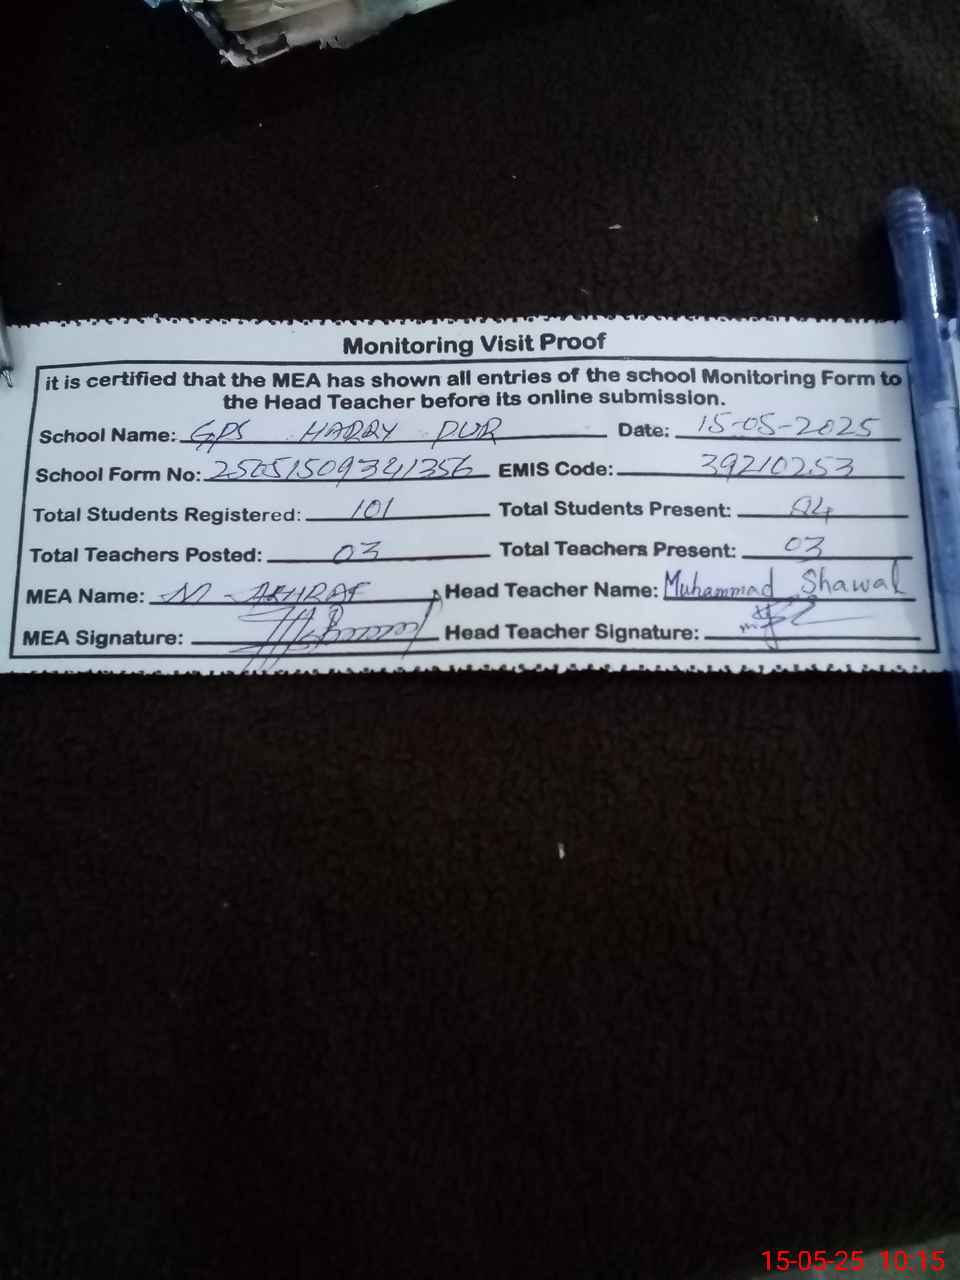 Monitoring Visit Proof
it is certified that the MEA has shown all entries of the school Monitoring Form to
the Head Teacher before its online submission.
School Name: GPS HARRY PUR Date: 15-05-2025
School Form No: EMIS Code: 39210253
Total Students Registered: 101 Total Students Present:
Total Teachers Posted: 03 Total Teachers Present: 03
MEA Name: M Head Teacher Name: Muhammad Shawal
MEA Signature: Head Teacher Signature:
15-05-25 10:15